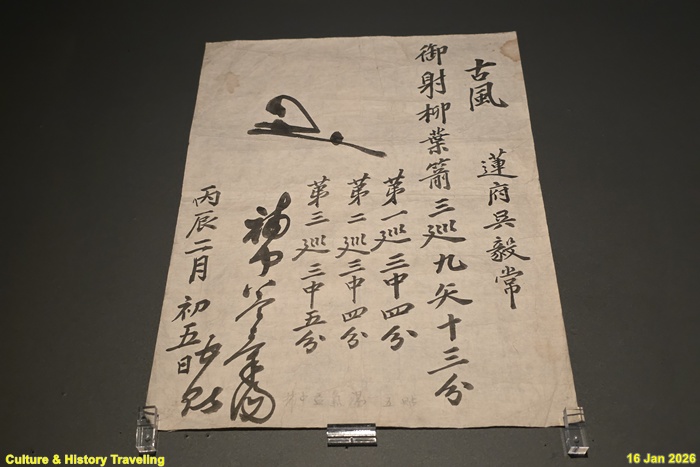 古風 蓮府吳毅常
御射柳葉箭三巡九矢十三分
第一巡三中四分
第二巡三中四分
第三巡三中五分
丙辰二月初五日
Culture & History Traveling
16 Jan 2026